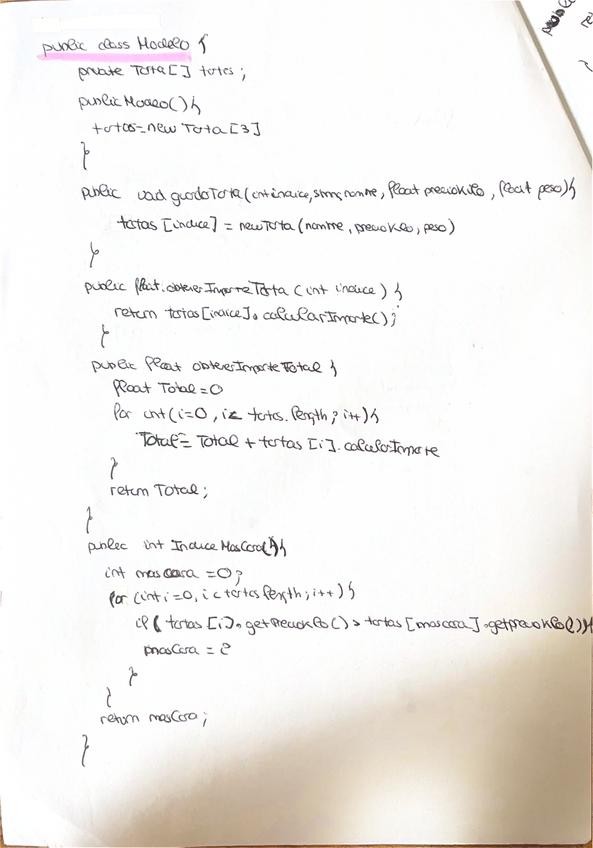 public class Modelo {
private Tarta[] tartas;
public Modelo(){
tartas=new Tarta[3]
}
public void guardaTarta(int indice, string nombre, float precioKilo, float peso){
tartas [indice] = new Tarta (nombre, precioKilo, peso)
}
public float obtenerImporteTarta (int indice) {
return tartas[indice].calcularImporte();
}
public float obtenerImporteTotal {
float Total=0
for int(i=0, i< tartas.length; i++){
Total= Total + tartas [i].calcularImporte
}
return Total;
}
public int IndiceMasCara(){
int mascara =0;
for (int i=0, i<tartas.length; i++){
if( tartas [i].getPrecioKilo() > tartas[mascara].getprecioKilo()){
masCara = i
}
}
return masCara;
}